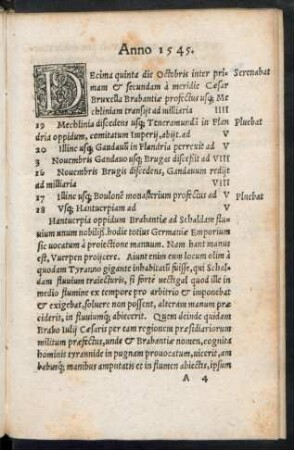 Anno 1545.
DEcima quinta die Octobris inter pri- Serenabat
mam & secundam à meridie Cæsar
Bruxella Brabantiæ profectus usq; Me
chliniam transijt ad milliaria IIII
19 Mechlinia discedens usq; Teneramundā in Flan Pluebat
dria oppidum, comitatum Imperij, abijt ad V
20 Illinc usq; Gandauū in Flandria perrexit ad V
3 Nouembris Gandauo usq; Brugis discessit ad VIII
16 Nouembris Brugis discedens, Gandauum redijt
ad milliaria VIII
17 Illinc usq; Boulonē monasterium profectus ad V Pluebat
18 Vsq; Hantuerpiam ad V
Hantuerpia oppidum Brabantiæ ad Schaldam flu-
uium unum nobiliss. hodie totius Germaniæ Emporium
sic uocatum à proiectione manuum. Nam hant manus
est, Vuerpen proijcere. Aiunt enim eum locum olim à
quodam Tyranno gigante inhabitatū fuisse, qui Schal-
dam fluuium traiecturis, si forte uectigal quod ille in
medio flumine ex tempore pro arbitrio & imponebat
& exigebat, soluere non possent, alteram manum præ
cideris, in fluuiumq; abiecerit. Quem deinde quidam
Brabo Iulij Cæsaris per eam regionem præsidiariorum
militum præfectus, unde & Brabantiæ nomen, cognita
hominis tyrannide in pugnam prouocatum, uicerit, am
babusq; manibus amputatis et in flumen abiectis, uſq;
A 4